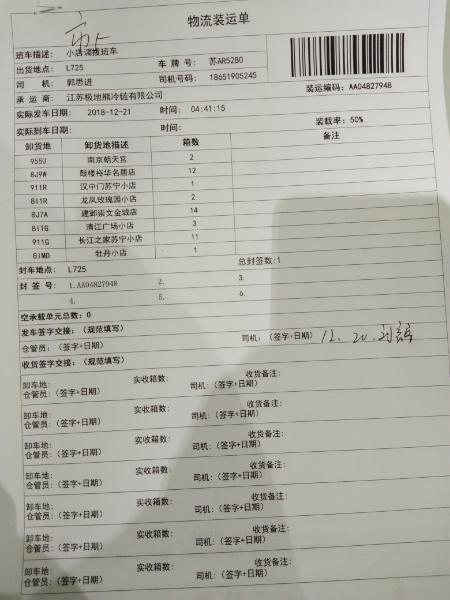 物流装运单
班车描述: 小店调拨班车
出货地点: L725 车牌号: 苏AR52B0
司机: 郭思进 司机号码: 18651905245
承运商: 江苏极地熊冷链有限公司 装运编码: AA04827948
实际发车日期: 2018-12-21 时间: 04:41:15
实际到车日期: 时间: 装载率: 50%
卸货地 卸货地描述 箱数 备注
955U 南京朝天宫 2
8J9W 鼓楼裕华名居店 12
911R 汉中门苏宁小店 1
811R 龙凤玫瑰园小店 2
8J7A 建邺崇文金城店 14
8ITG 清江广场小店 3
911G 长江之家苏宁小店 11
8IMD 牡丹小店 1
封车地点: L725 总封签数:1
封签号: 1.AA04827948 2. 3.
4. 5. 6.
空承载单元总数: 0
发车签字交接:(规范填写)
仓管员:(签字+日期) 司机:(签字+日期) 12.20.
收货签字交接:(规范填写)
卸车地: 实收箱数: 收货备注:
仓管员:(签字+日期) 司机:(签字+日期)
卸车地: 实收箱数: 收货备注:
仓管员:(签字+日期) 司机:(签字+日期)
卸车地: 实收箱数: 收货备注:
仓管员:(签字+日期) 司机:(签字+日期)
卸车地: 实收箱数: 收货备注:
仓管员:(签字+日期) 司机:(签字+日期)
卸车地: 实收箱数: 收货备注:
仓管员:(签字+日期) 司机:(签字+日期)
卸车地: 实收箱数: 收货备注:
仓管员:(签字+日期) 司机:(签字+日期)
卸车地: 实收箱数: 收货备注:
仓管员:(签字+日期) 司机:(签字+日期)